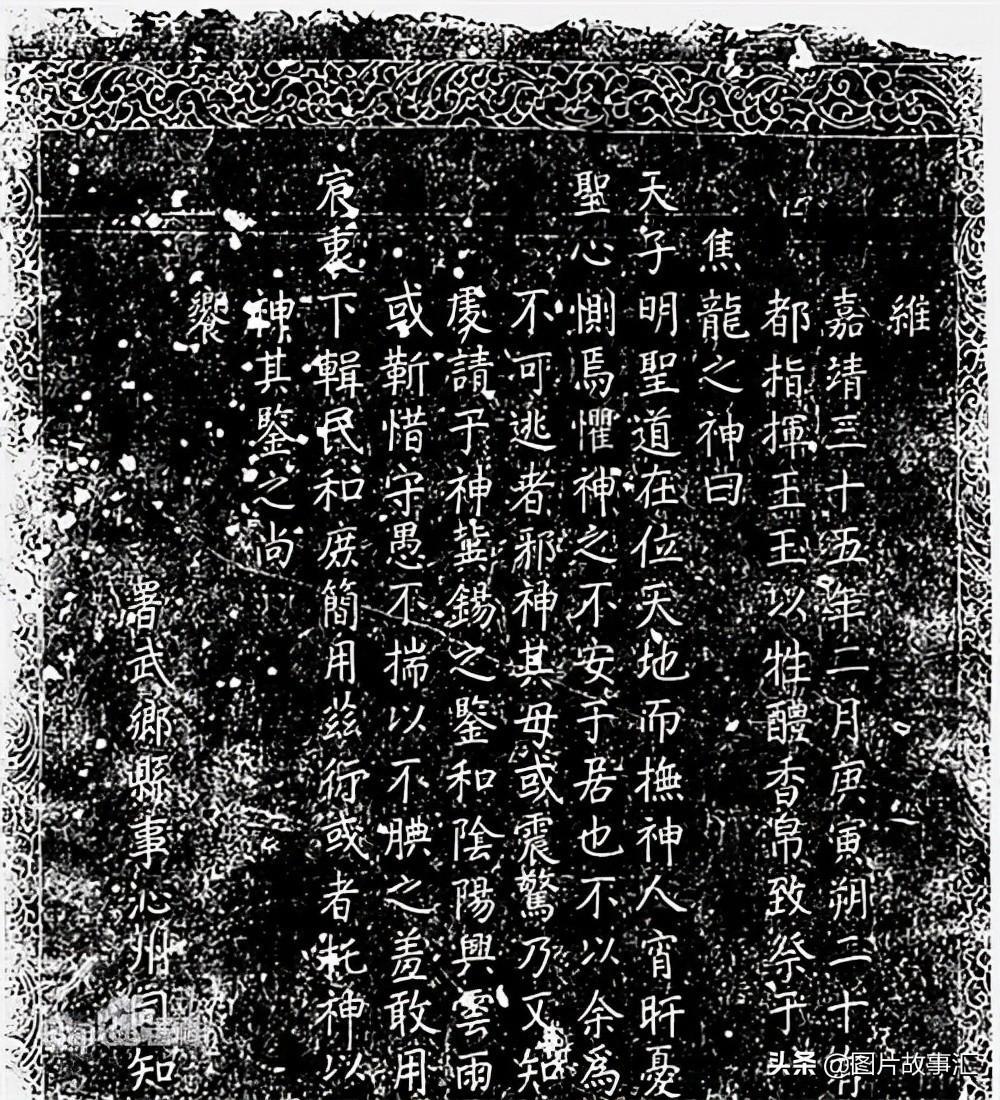 維
嘉靖三十五年二月庚寅朔二十有
都指揮王玉以牲醴香帛致祭于
焦龍之神曰
天子明聖道在位天地而撫神人宵旰憂
聖心惻焉懼神之不安于居也不以余為
不可逃者邪神其毋或震驚乃又知
虔請于神冀錫之鑒和陰陽興雲雨
或靳惜守愚不揣以不腆之羞敢用
宸衷下輯民和庶簡用茲衍或者托神以
神其鑒之尚
饗
署武鄉縣事沁州同知
头条 @图片故事汇